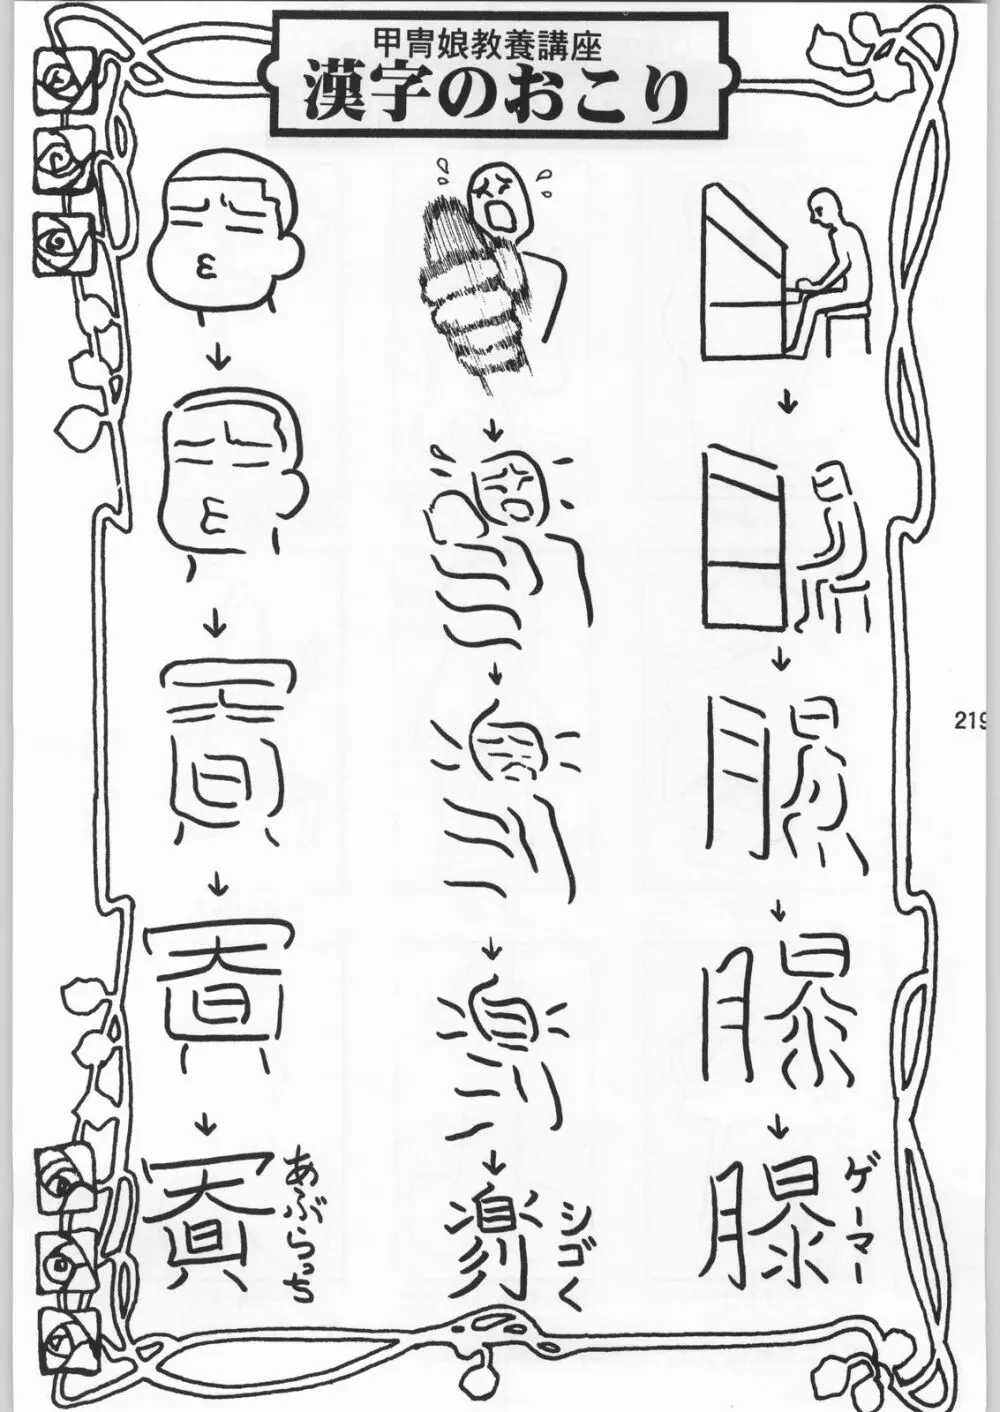 甲冑娘教養講座
漢字のおこり
ゲーマー
シゴく
あぶらっち
219